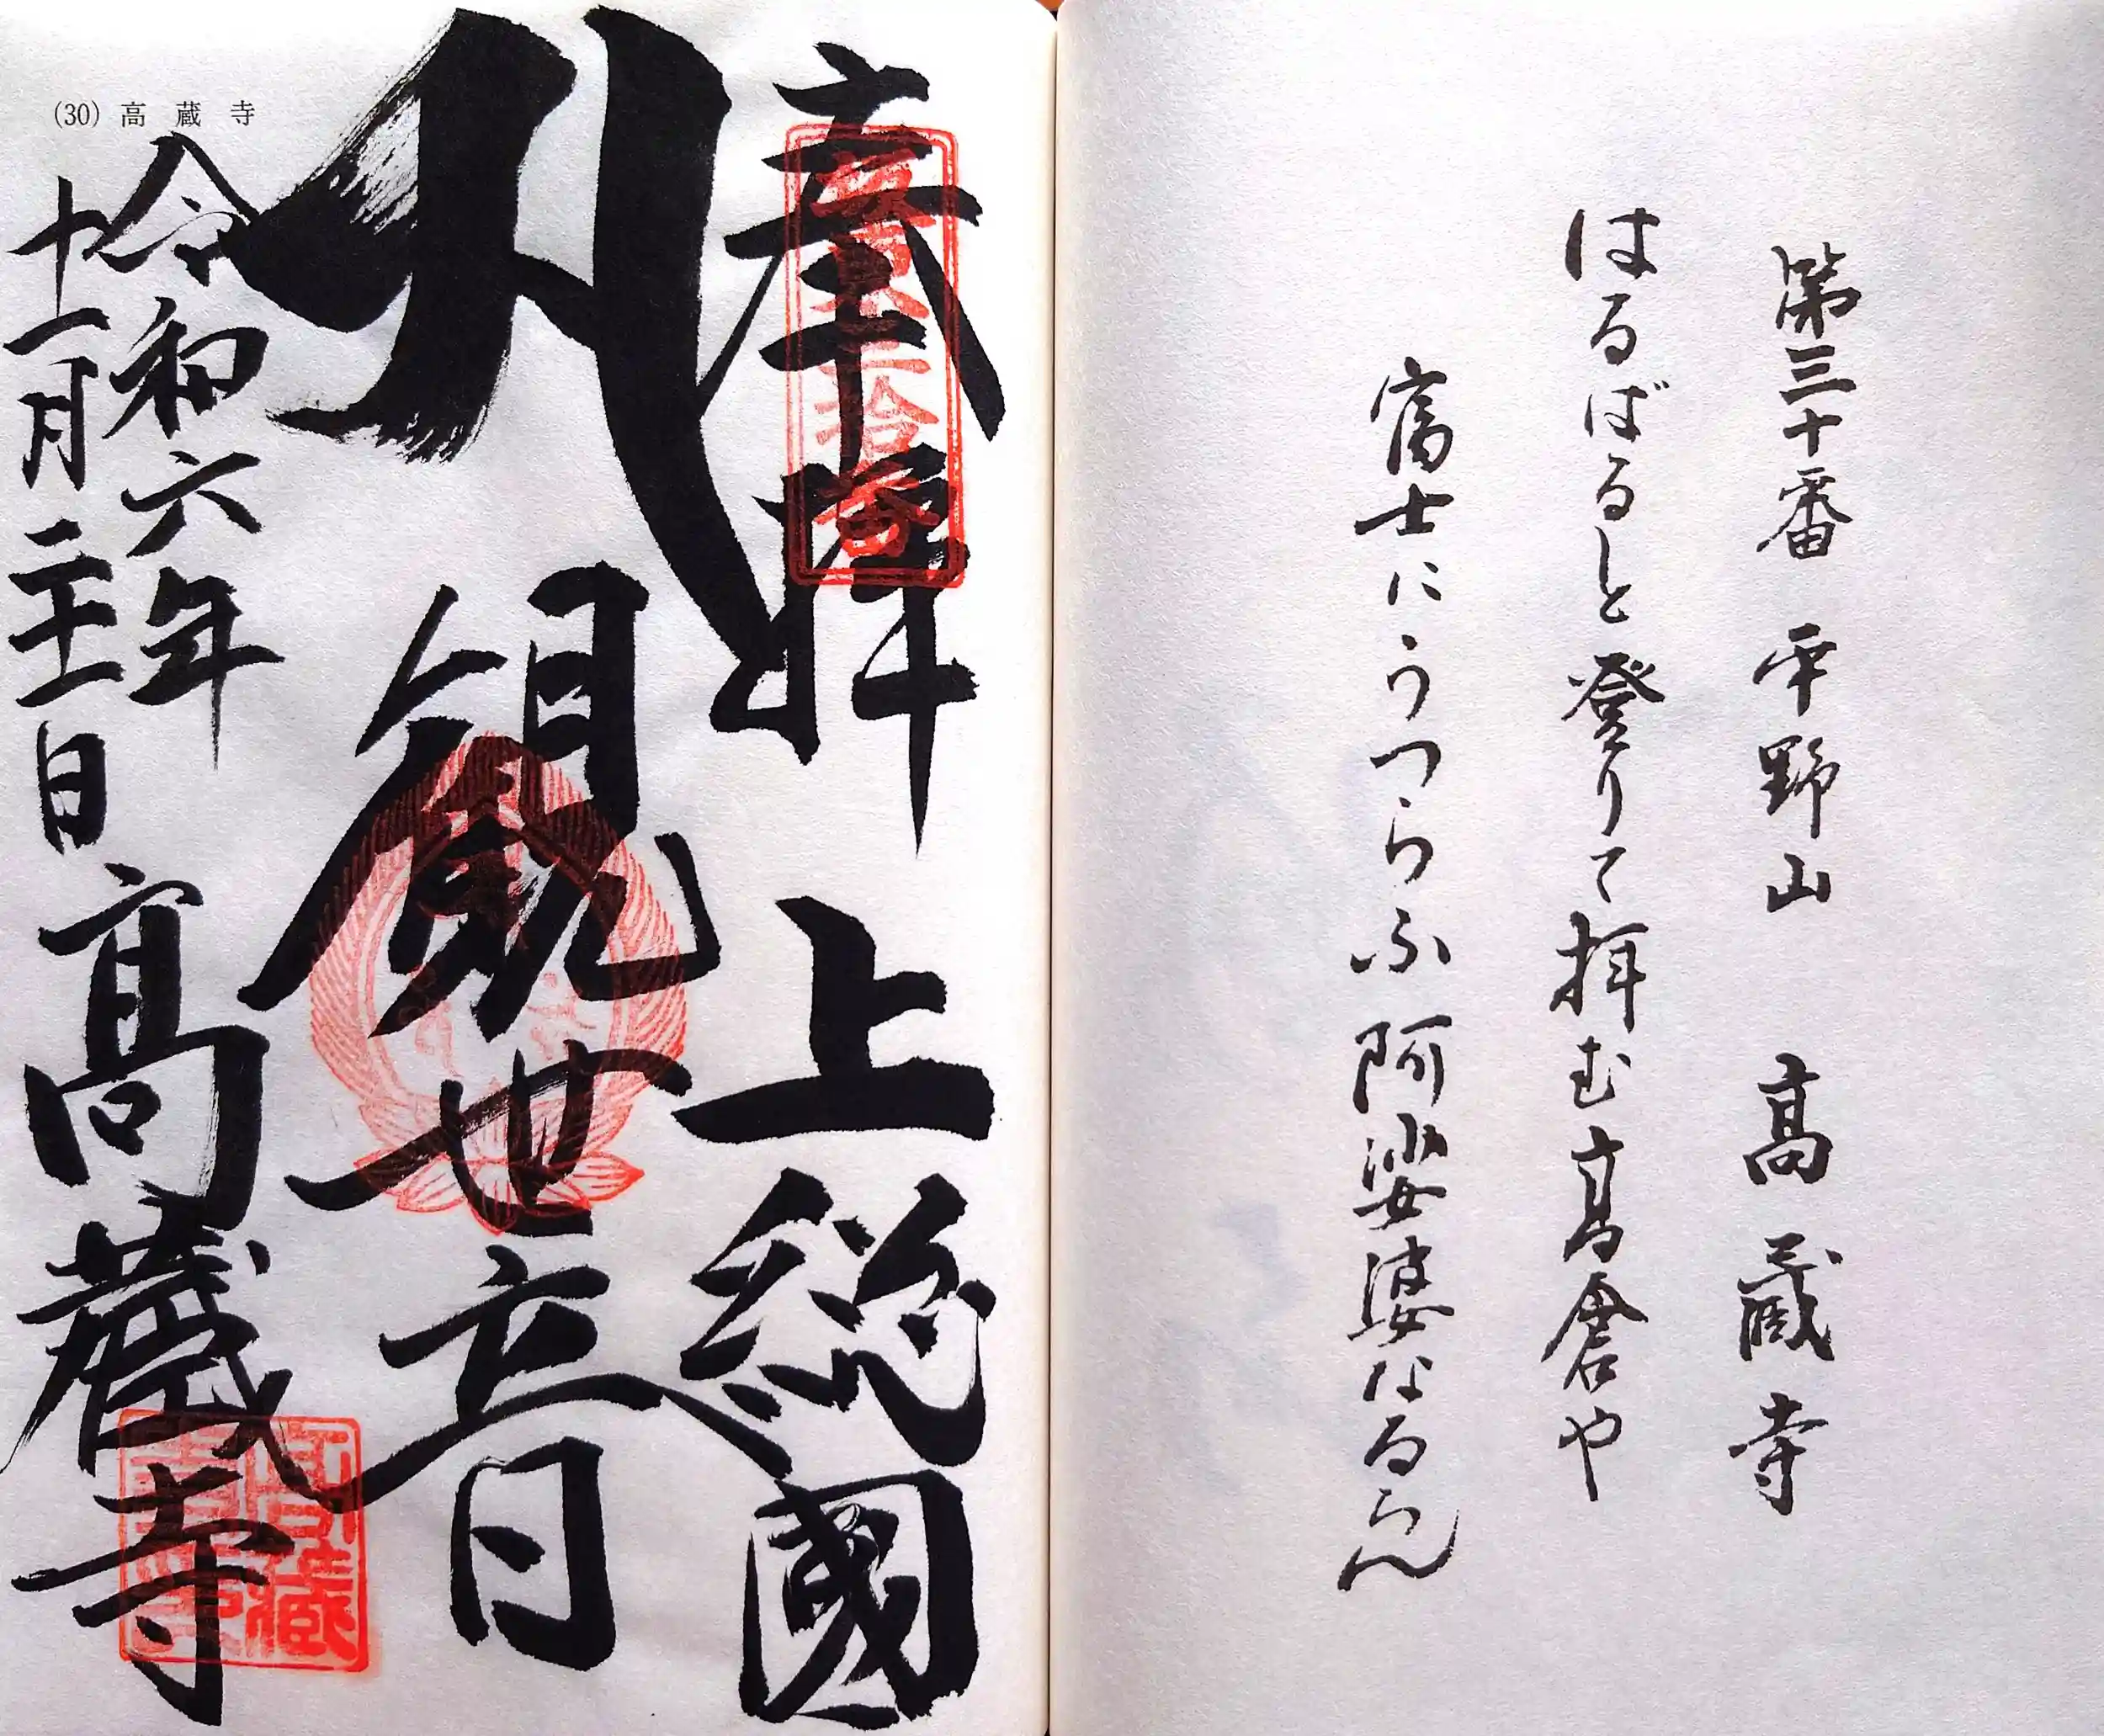 第三十番 平野山 高蔵寺
はるばると登りて拝む高倉や
富士にうつらふ阿娑婆なるらん
(30) 高蔵寺
奉拝 上総國
坂東三拾番
観世音
令和六年
十一月 日
高蔵寺